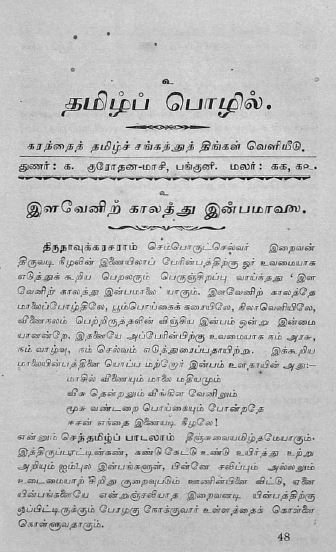 உ
தமிழ்ப் பொழில்.
கரந்தைத் தமிழ்ச் சங்கத்துத் திங்கள் வெளியீடு.
துணர்: க. குரோதன-மாசி, பங்குனி. மலர்: கக, கஉ.
உ
இளவேனிற் காலத்து இன்பமாலை.
திருநாவுக்கரசராம் செம்பொருட்செல்வர் இறைவன்
திருவடி நீழலின் இணையிலாப் பேரின்பத்திற்கு ஓர் உவமையாக
எடுத்துக் கூறிய பெறலரும் பெருஞ்சிறப்பு வாய்ந்தது 'இள
வேனிற் காலத்து இன்பமாலை' யாகும். இளவேனிற் காலத்தே
மாலைப்போழ்திலே, பூம்பொய்கைக் கரையிலே, நிலாவெளியிலே,
வீணைநலம் பெற்றிருத்தளின் விஞ்சிய இன்பம் ஒன்று இன்மை
யானன்றே. இதனையே அப்பேரின்பிற்கு உவமையாக நம் அரசு,
நம் வாழ்வு, நம் செல்வம் எடுத்துரைப்பதாயிற்று. இக்கூறிய
மாலையின்பத்தினை யொப்ப மற்றோர் இன்பம் உளதாயின் அது:—
மாசில் வீணையும் மாலை மதியமும்
வீசு தென்றலும் வீங்கிள வேனிலும்
மூசு வண்டறை பொய்கையும் போன்றதே
ஈசன் எந்தை இணையடி நீழலே!
என்னும் செந்தமிழ்ப் பாடலாம் தீஞ்சுவையமிழ்தமேயாகும்.
இத்திருப்பாட்டினைக், கண்டு கேட்டு உண்டு உயிர்த்து உற்று
அறியும் ஐம்புல இன்பங்களுள், பின்னே சலிப்பும் அல்லலும்
உடைமையாற் சிறிது குறைவுபடும் ஊணின்பினை விட்டு, ஏனை
யின்பங்களையே என்றஞ்சலியாத இறைவனடி யின்பத்திற்கு
ஒப்பிட்டிருக்கும் போழகு நோக்குவார் உள்ளத்தைக் கொள்ளை
கொள்ளுவதாகும்.
48